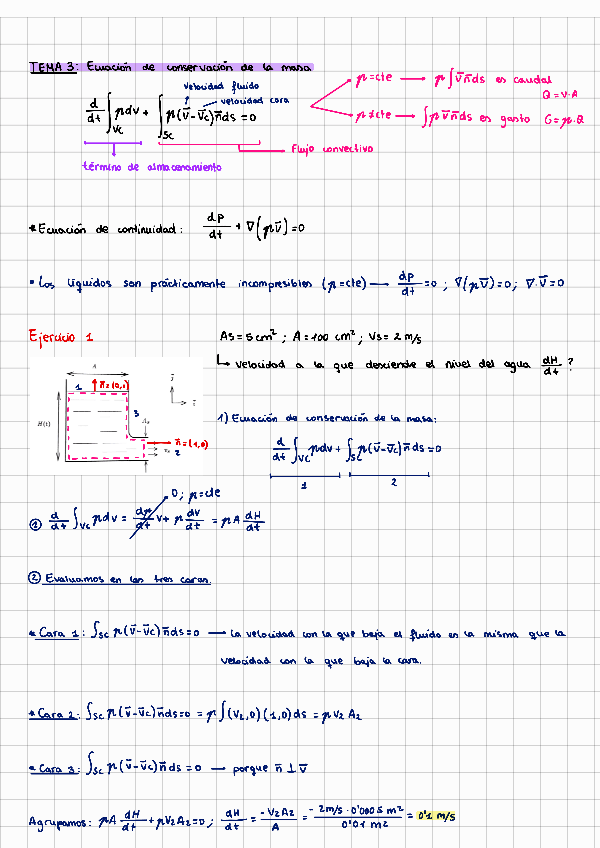 TEMA 3: Ecuación de conservación de la masa
velocidad fluido
velocidad cara
d/dt ∫VC ρdv + ∫SC ρ(v̄-v̄c)n̄ds = 0
término de almacenamiento
flujo convectivo
ρ=cte → ρ∫v̄n̄ds es caudal
Q=v·A
ρ≠cte → ∫ρv̄n̄ds es gasto G=ρ·Q
* Ecuación de continuidad: dρ/dt + ∇(ρv̄)=0
• Los líquidos son prácticamente incompresibles (ρ=cte) → dρ/dt=0 ; ∇(ρv̄)=0; ∇·v̄=0
Ejercicio 1
As=5cm² ; A=100 cm² ; Vs=2m/s
↳ velocidad a la que desciende el nivel del agua dH/dt ?
A
1
n̄=(0,1)
3
As
H(t)
n̄=(1,0)
2
1) Ecuación de conservación de la masa:
d/dt ∫VC ρdv + ∫SC ρ(v̄-v̄c)n̄ds=0
1 2
0; ρ=cte
① d/dt ∫VC ρdv = dρ/dt V + ρ dV/dt = ρA dH/dt
② Evaluamos en las tres caras.
* Cara 1: ∫SC ρ(v̄-v̄c)n̄ds=0 → la velocidad con la que baja el fluido es la misma que la
velocidad con la que baja la cara.
* Cara 2: ∫SC ρ(v̄-v̄c)n̄ds=0 = ρ∫(V2,0)(1,0)ds = ρV2A2
* Cara 3: ∫SC ρ(v̄-v̄c)n̄ds=0 → porque n̄⊥v̄
Agrupamos: ρA dH/dt + ρV2A2=0; dH/dt = -V2A2/A = -2m/s·0'0005 m²/0'01 m² = 0'1 m/s